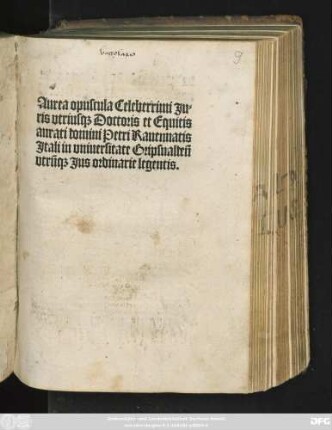 9
Aurea opuscula Celeberrimi Ju⸗
ris vtriusqꝫ Doctoris et Equitis
aurati domini Petri Rauennatis
Itali in vniuersitate Gripsualdeñ
vtrũqꝫ Jus ordinarie legentis.